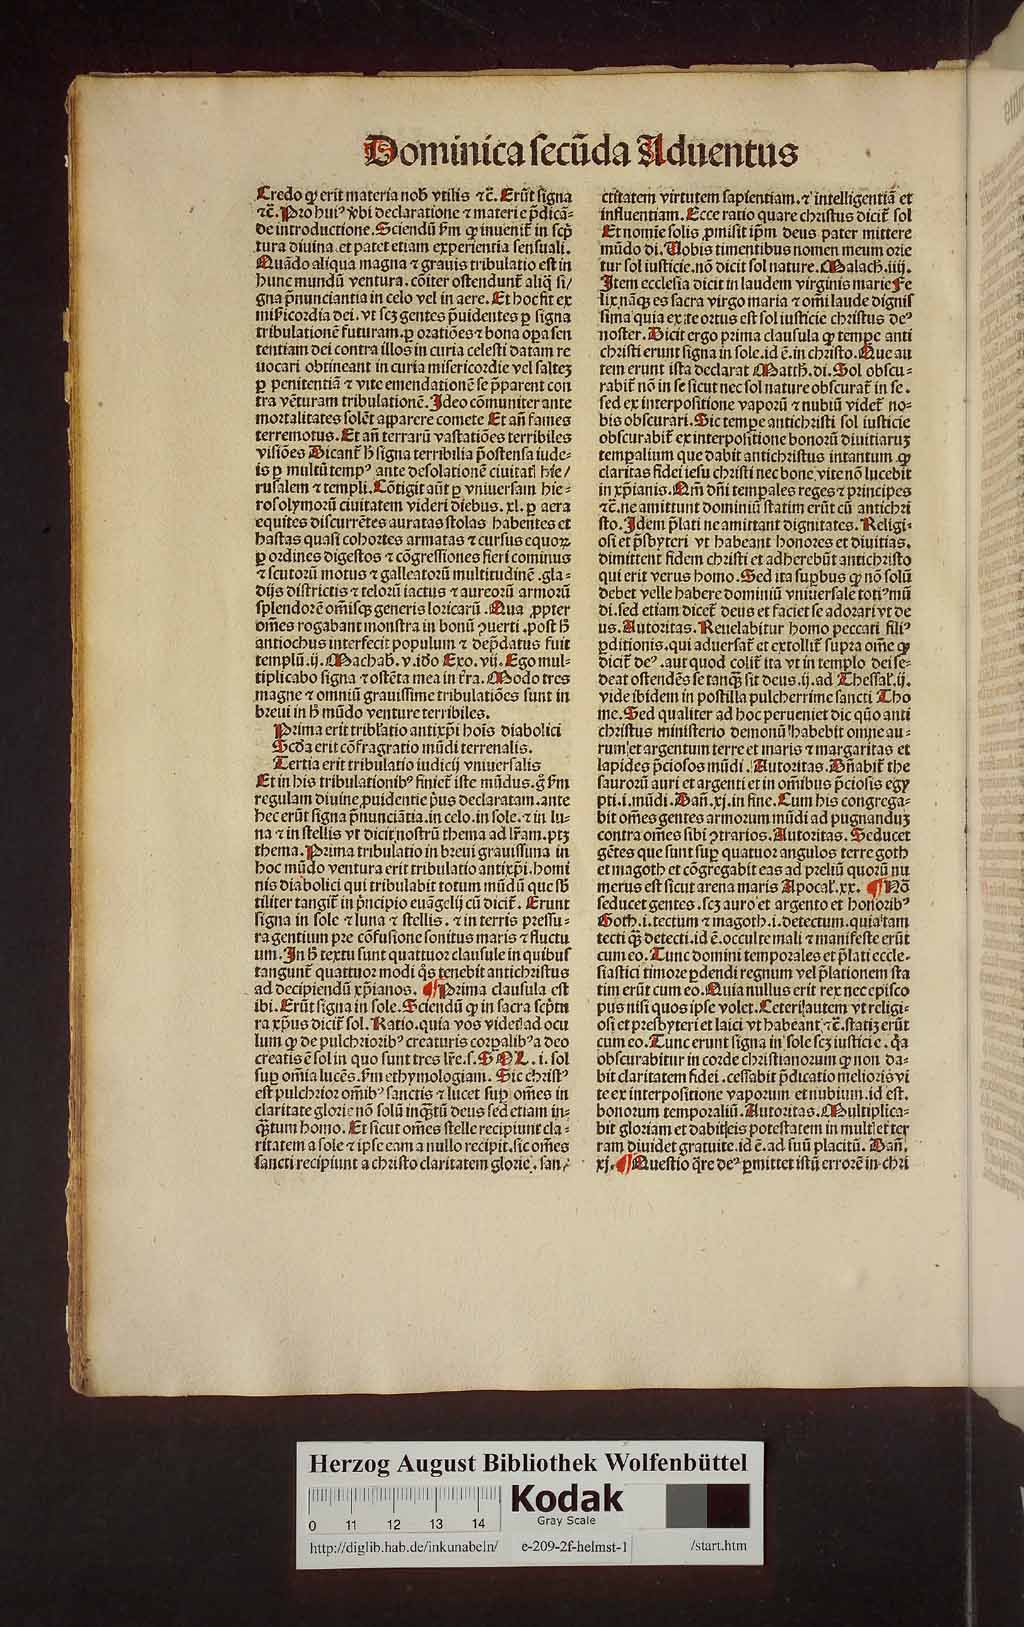 Dominica secūda Aduentus
Credo ꝙ erit materia nob̄ vtilis ⁊c̄. Erūt signa
⁊c̄. Pro huiꝰ v̓bi declaratione ⁊ materie p̄dicā⸗
de introductione. Sciendū ẜm ꝙ inuenit̄ in scp̄
tura diuina et patet etiam experientia sensuali.
Quādo aliqua magna ⁊ grauis tribulatio est in
hunc mundū ventura. cōiter ostendunt̄ aliq̄ si/
gna p̄nunciantia in celo vel in aere. Et hoc fit ex
mis̓icordia dei. vt scꝫ gentes p̄uidentes ꝑ signa
tribulationē futuram. ꝑ oratiōes ⁊ bona oꝑa sen
tentiam dei contra illos in curia celesti datam re
uocari obtineant in curia misericordie vel saltez
ꝑ penitentiā ⁊ vite emendationē se p̄parent con
tra vēturam tribulationē. Ideo cōmuniter ante
mortalitates solēt apparere comete Et añ fames
terremotus. Et añ terrarū vastatiōes terribiles
visiōes Dicant̄ h̄ signa terribilia p̄ostensa iude⸗
is ꝑ multū tempꝰ ante desolationē ciuitat̄ hie/
rusalem ⁊ templi. Cōtigit aūt ꝑ vniuersam hie⸗
rosolymorū ciuitatem videri diebus .xl. ꝑ aera
equites discurrētes auratas stolas habentes et
hastas quasi cohortes armatas ⁊ cursus equoꝝ
ꝑ ordines digestos ⁊ cōgressiones fieri cominus
⁊ scutorū motus ⁊ galleatorū multitudinē .gla⸗
dijs districtis ⁊ telorū iactus ⁊ aureorū armorū
splendorē om̄isqꝫ generis loricarū .Qua ꝓpter
om̄es rogabant monstra in bonū ꝯuerti .post h̄
antiochus interfecit populum ⁊ dep̄datus fuit
templū .ij. Machab. v. iđo Exo. vii. Ego mul⸗
tiplicabo signa ⁊ ostēta mea in t̓ra. Modo tres
magne ⁊ omniū grauissime tribulatiōes sunt in
breui in h̄ mūdo venture terribiles.
Prima erit tribl̓atio antixp̄i hoīs diabolici
Scđa erit cōfragratio mūdi terrenalis.
Tertia erit tribulatio iudicij vniuersalis
Et in his tribulationibꝰ finiet̄ iste mūdus. g̊ ẜm
regulam diuine ꝓuidentie p̄us declaratam. ante
hec erūt signa p̄nunciātia. in celo. in sole. ⁊ in lu⸗
na ⁊ in stellis vt dicit nostrū thema ad lr̄am. ptꝫ
thema. Prima tribulatio in breui grauissima in
hoc mūdo ventura erit tribulatio antixp̄i. homi
nis diabolici qui tribulabit totum mūdū que sb̄
tiliter tangit̄ in p̄ncipio euāgelij cū dicit̄. Erunt
signa in sole ⁊ luna ⁊ stellis. ⁊ in terris pressu⸗
ra gentium pre cōfusione sonitus maris ⁊ fluctu
um. In h̄ textu sunt quattuor clausule in quibus
tangunt̄ quattuor modi q̊s tenebit antichristus
ad decipiendū xp̄ianos. ¶ Prima clausula est
ibi. Erūt signa in sole. Sciendū ꝙ in sacra scp̄tu
ra xp̄us dicit̄ sol. Ratio. quia vos videt̄ ad ocu
lum ꝙ de pulchrioribꝰ creaturis corꝑalibꝰ a deo
creatis ē sol in quo sunt tres lr̄e .s. S O L. i. sol
suꝑ om̄ia lucēs. ẜm ethymologiam. Sic christꝰ
est pulchrior om̄ibꝰ sanctis ⁊ lucet suꝑ om̄es in
claritate glorie nō solū inqꝫtū deus sed etiam in⸗
qꝫtum homo. Et sicut om̄es stelle recipiunt cla⸗
ritatem a sole ⁊ ipse eam a nullo recipit. sic om̄es
sancti recipiunt a christo claritatem glorie. san/
ctitatem virtutem sapientiam. ⁊ intelligentiā et
influentiam. Ecce ratio quare christus dicit̄ sol
Et nomīe solis ꝓmisit ip̄m deus pater mittere
mūdo di. Vobis timentibus nomen meum orie
tur sol iusticie. nō dicit sol nature. Malach. iiij.
Item ecclesia dicit in laudem virginis marie Fe
lix nāqꝫ es sacra virgo maria ⁊ om̄i laude dignis
sima quia ex te ortus est sol iusticie christus deꝰ
noster. Dicit ergo prima clausula ꝙ tempe anti
christi erunt signa in sole. id ē. in christo. Que au
tem erunt ista declarat Matth. di. Sol obscu⸗
rabit̄ nō in se sicut nec sol nature obscurat̄ in se.
sed ex interpositione vaporū ⁊ nubiū videt̄ no⸗
bis obscurari. Sic tempe antichristi sol iusticie
obscurabit̄ ex interpositione bonorū diuitiaruꝫ
tempalium que dabit antichristus intantum ꝙ
claritas fidei iesu christi nec bone vite nō lucebit
in xp̄ianis. Nā dn̄i tempales reges ⁊ principes
⁊c̄. ne amittunt dominiū statim erūt cū antichri
sto. Idem p̄lati ne amittant dignitates. Religi⸗
osi et p̄sbyteri vt habeant honores et diuitias.
dimittent fidem christi et adherebūt antichristo
qui erit verus homo. Sed ita suꝑbus ꝙ nō solū
debet velle habere dominiū vniuersale totiꝰ mū
di. sed etiam dicet̄ deus et faciet se adorari vt de
us. Autoritas. Reuelabitur homo peccati filiꝰ
ꝑditionis. qui aduersat̄ et extollit̄ supra om̄e ꝙ
dicit̄ deꝰ. aut quod colit̄ ita vt in templo dei se⸗
deat ostendēs se tanqꝫ sit deus .ij. ad Thessal̓. ij.
vide ibidem in postilla pulcherrime sancti Tho
me. Sed qualiter ad hoc perueniet dic quo anti
christus ministerio demonū habebit omne au⸗
rum et argentum terre et maris ⁊ margaritas et
lapides p̄ciosos mūdi. Autoritas. Dn̄abit̄ the
saurorū auri et argenti et in om̄ibus p̄ciosis egy
pti .i. mūdi. Dañ. xj. in fine. Cum his congrega⸗
bit om̄es gentes armorum mūdi ad pugnanduꝫ
contra om̄es sibi ꝯtrarios. Autoritas. Seducet
gētes que sunt suꝑ quatuor angulos terre goth
et magoth et cōgregabit eas ad preliū quorū nu
merus est sicut arena maris Apocal̓. xx. ¶ Nō
seducet gentes. scꝫ auro et argento et honoribꝰ
Goth .i. tectum ⁊ magoth .i. detectum. quia tam
tecti qꝫ detecti. id ē. occulte mali ⁊ manifeste erūt
cum eo. Tunc domini temporales et p̄lati eccle⸗
siastici timore ꝑdendi regnum vel p̄lationem sta
tim erūt cum eo. Quia nullus erit rex nec episco
pus nisi quos ipse volet. Ceteri autem vt religi⸗
osi et presbyteri et laici vt habeant ⁊c̄. statiꝫ erūt
cum eo. Tunc erunt signa in sole scꝫ iusticie. q̄a
obscurabitur in corde christianorum ꝙ non da⸗
bit claritatem fidei. cessabit p̄dicatio melioris vi
te ex interpositione vaporum et nubium. id est.
bonorum temporaliū. Autoritas. Multiplica⸗
bit gloriam et dabit eis potestatem in mult̄ et ter
ram diuidet gratuite. id ē. ad suū placitū. Dañ.
xj. ¶ Questio q̄re deꝰ ꝑmittet istū errorē in chri
Herzog August Bibliothek Wolfenbüttel
0 11 12 13 14
Kodak
Gray Scale
http://diglib.hab.de/inkunabeln/ e-209-2f-helmst-1 /start.htm